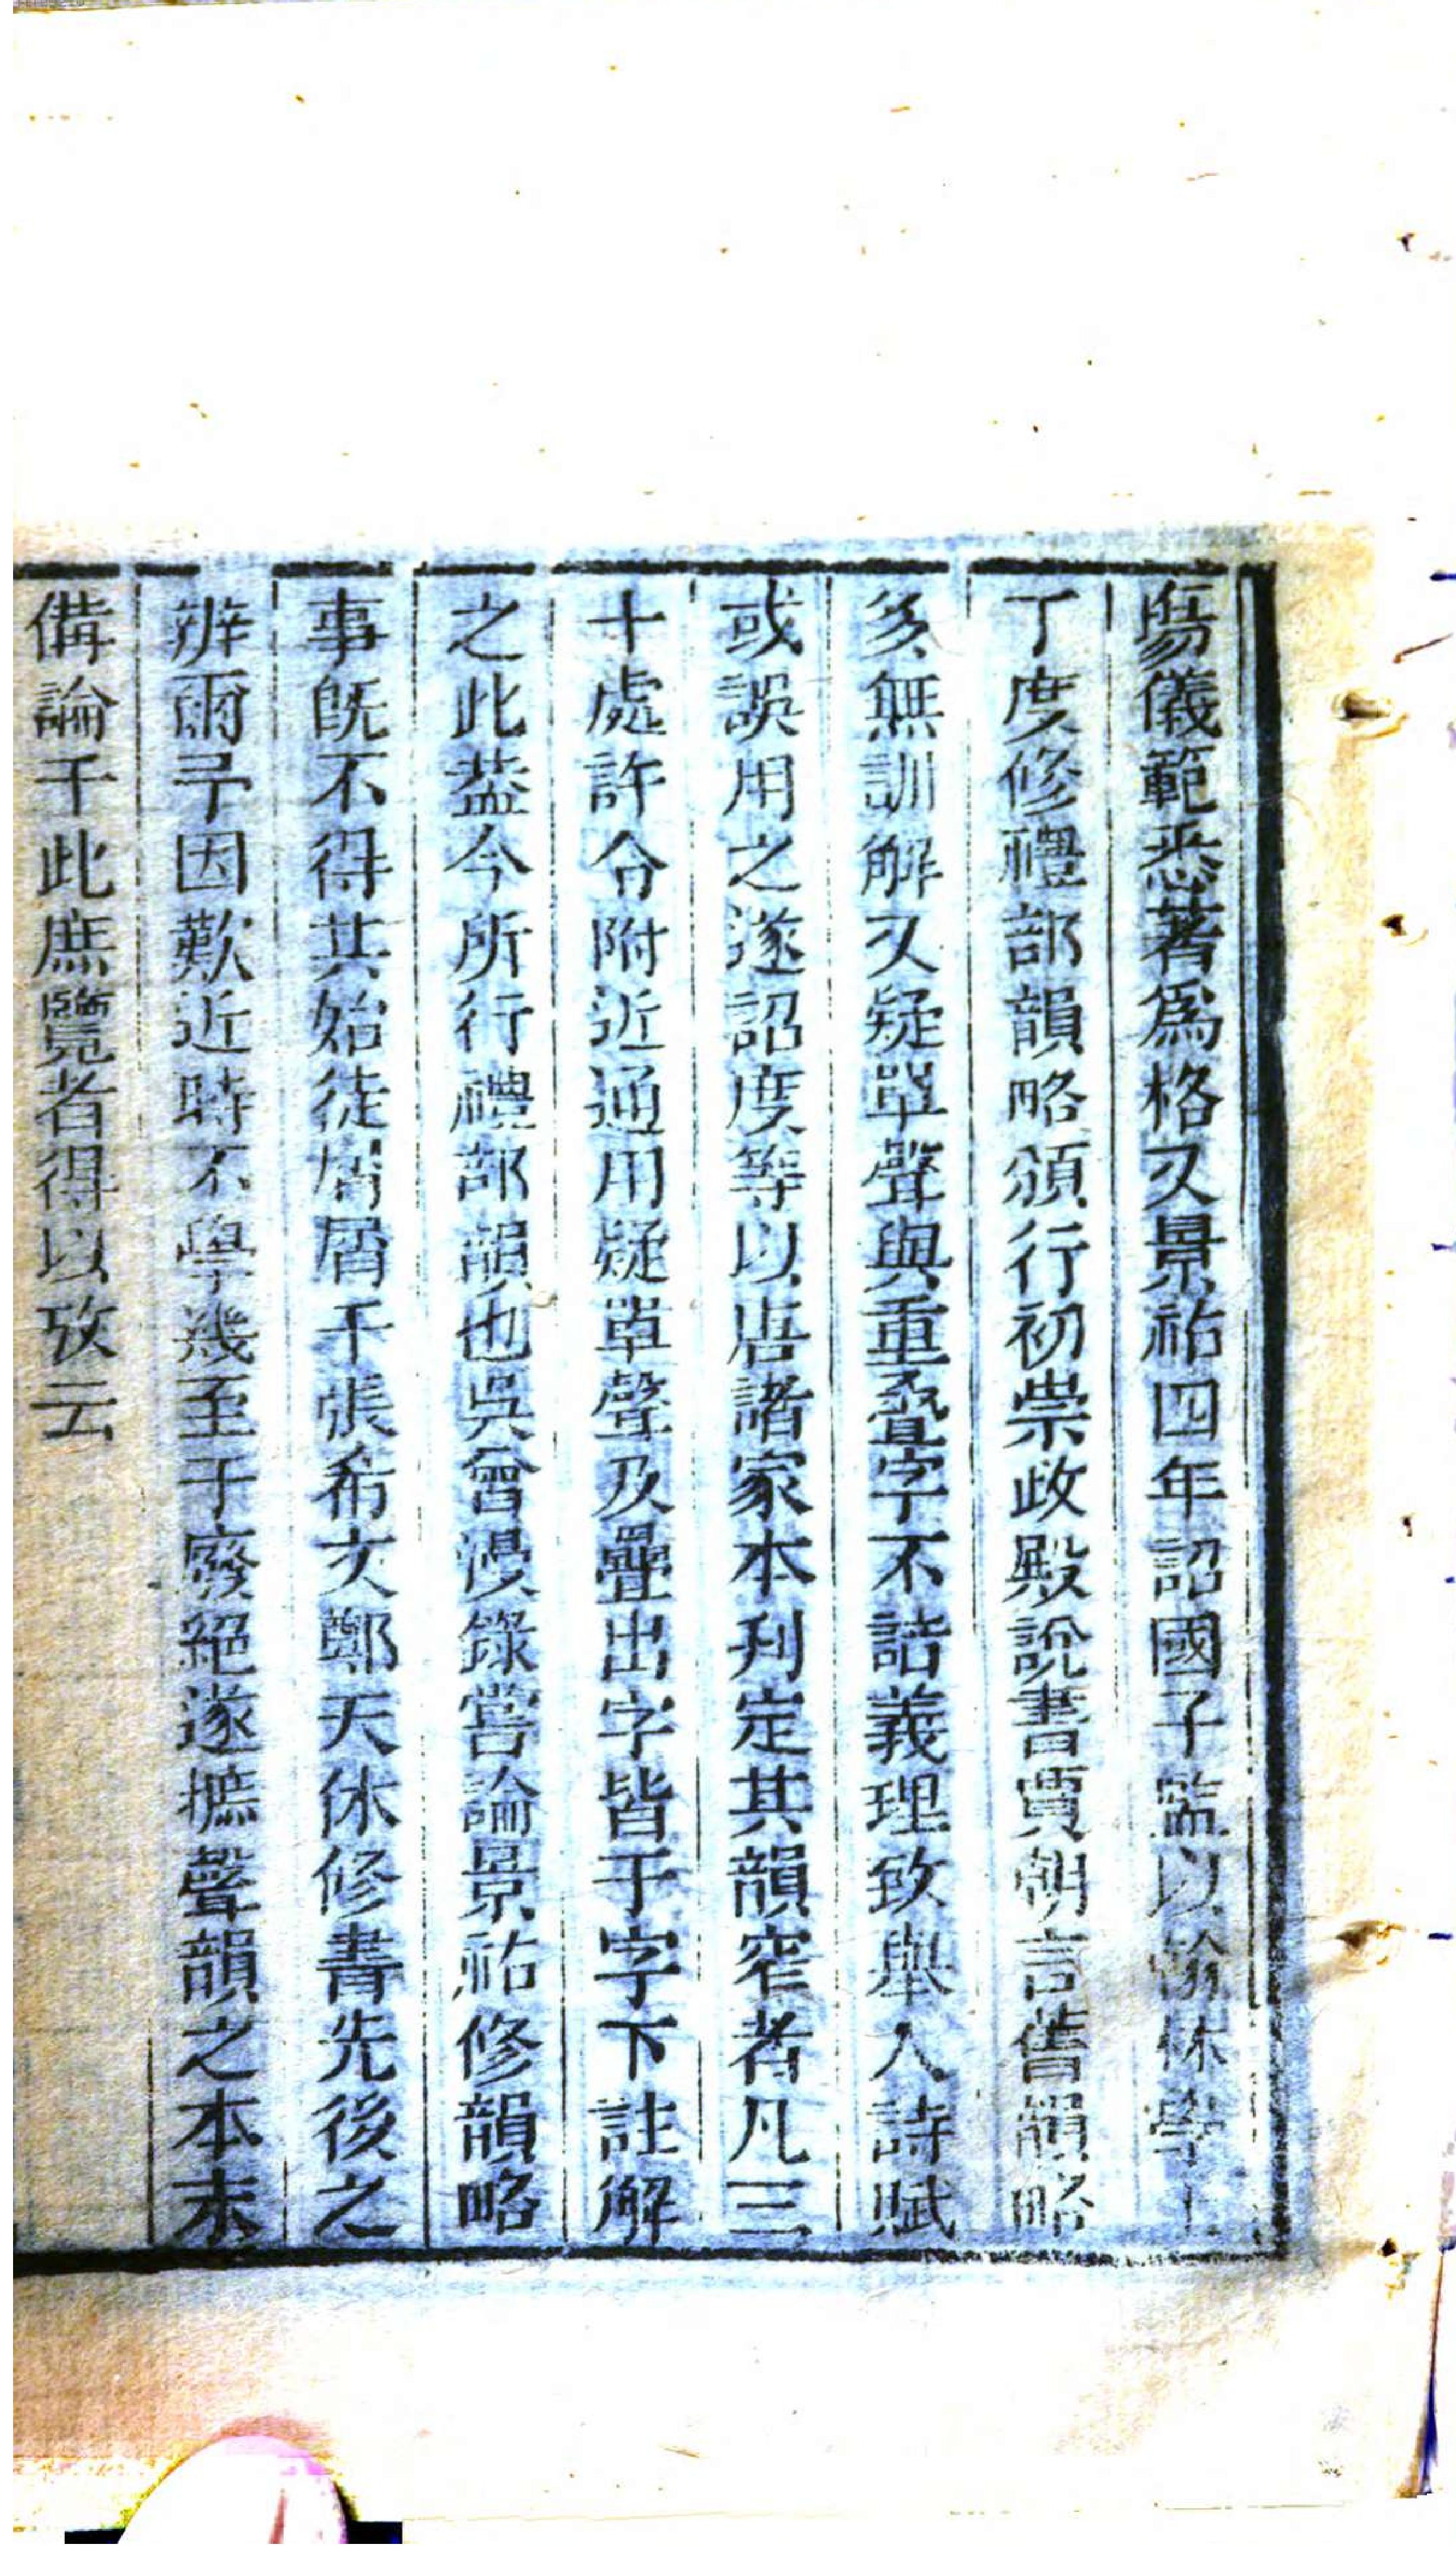 傷儀範悉著爲格又景祐四年詔國子監以翰林學士
丁度修禮部韻略頒行初崇政殿說書賈朝言舊韻略
多無訓解又疑單聲與重叠字不詰義理致舉人詩賦
或誤用之遂詔度等以唐諸家本刋定其韻窄者凡三
十處許令附近通用疑單聲及疊出字皆于字下註解
之此葢今所行禮部韻也吳曾漫錄嘗論景祐修韻略
事旣不得其始徒屑屑于張希文鄭天休修書先後之
辨爾予因歎近時不學幾至于廢絕遂摭聲韻之本末
備論于此庶覽者得以攷云